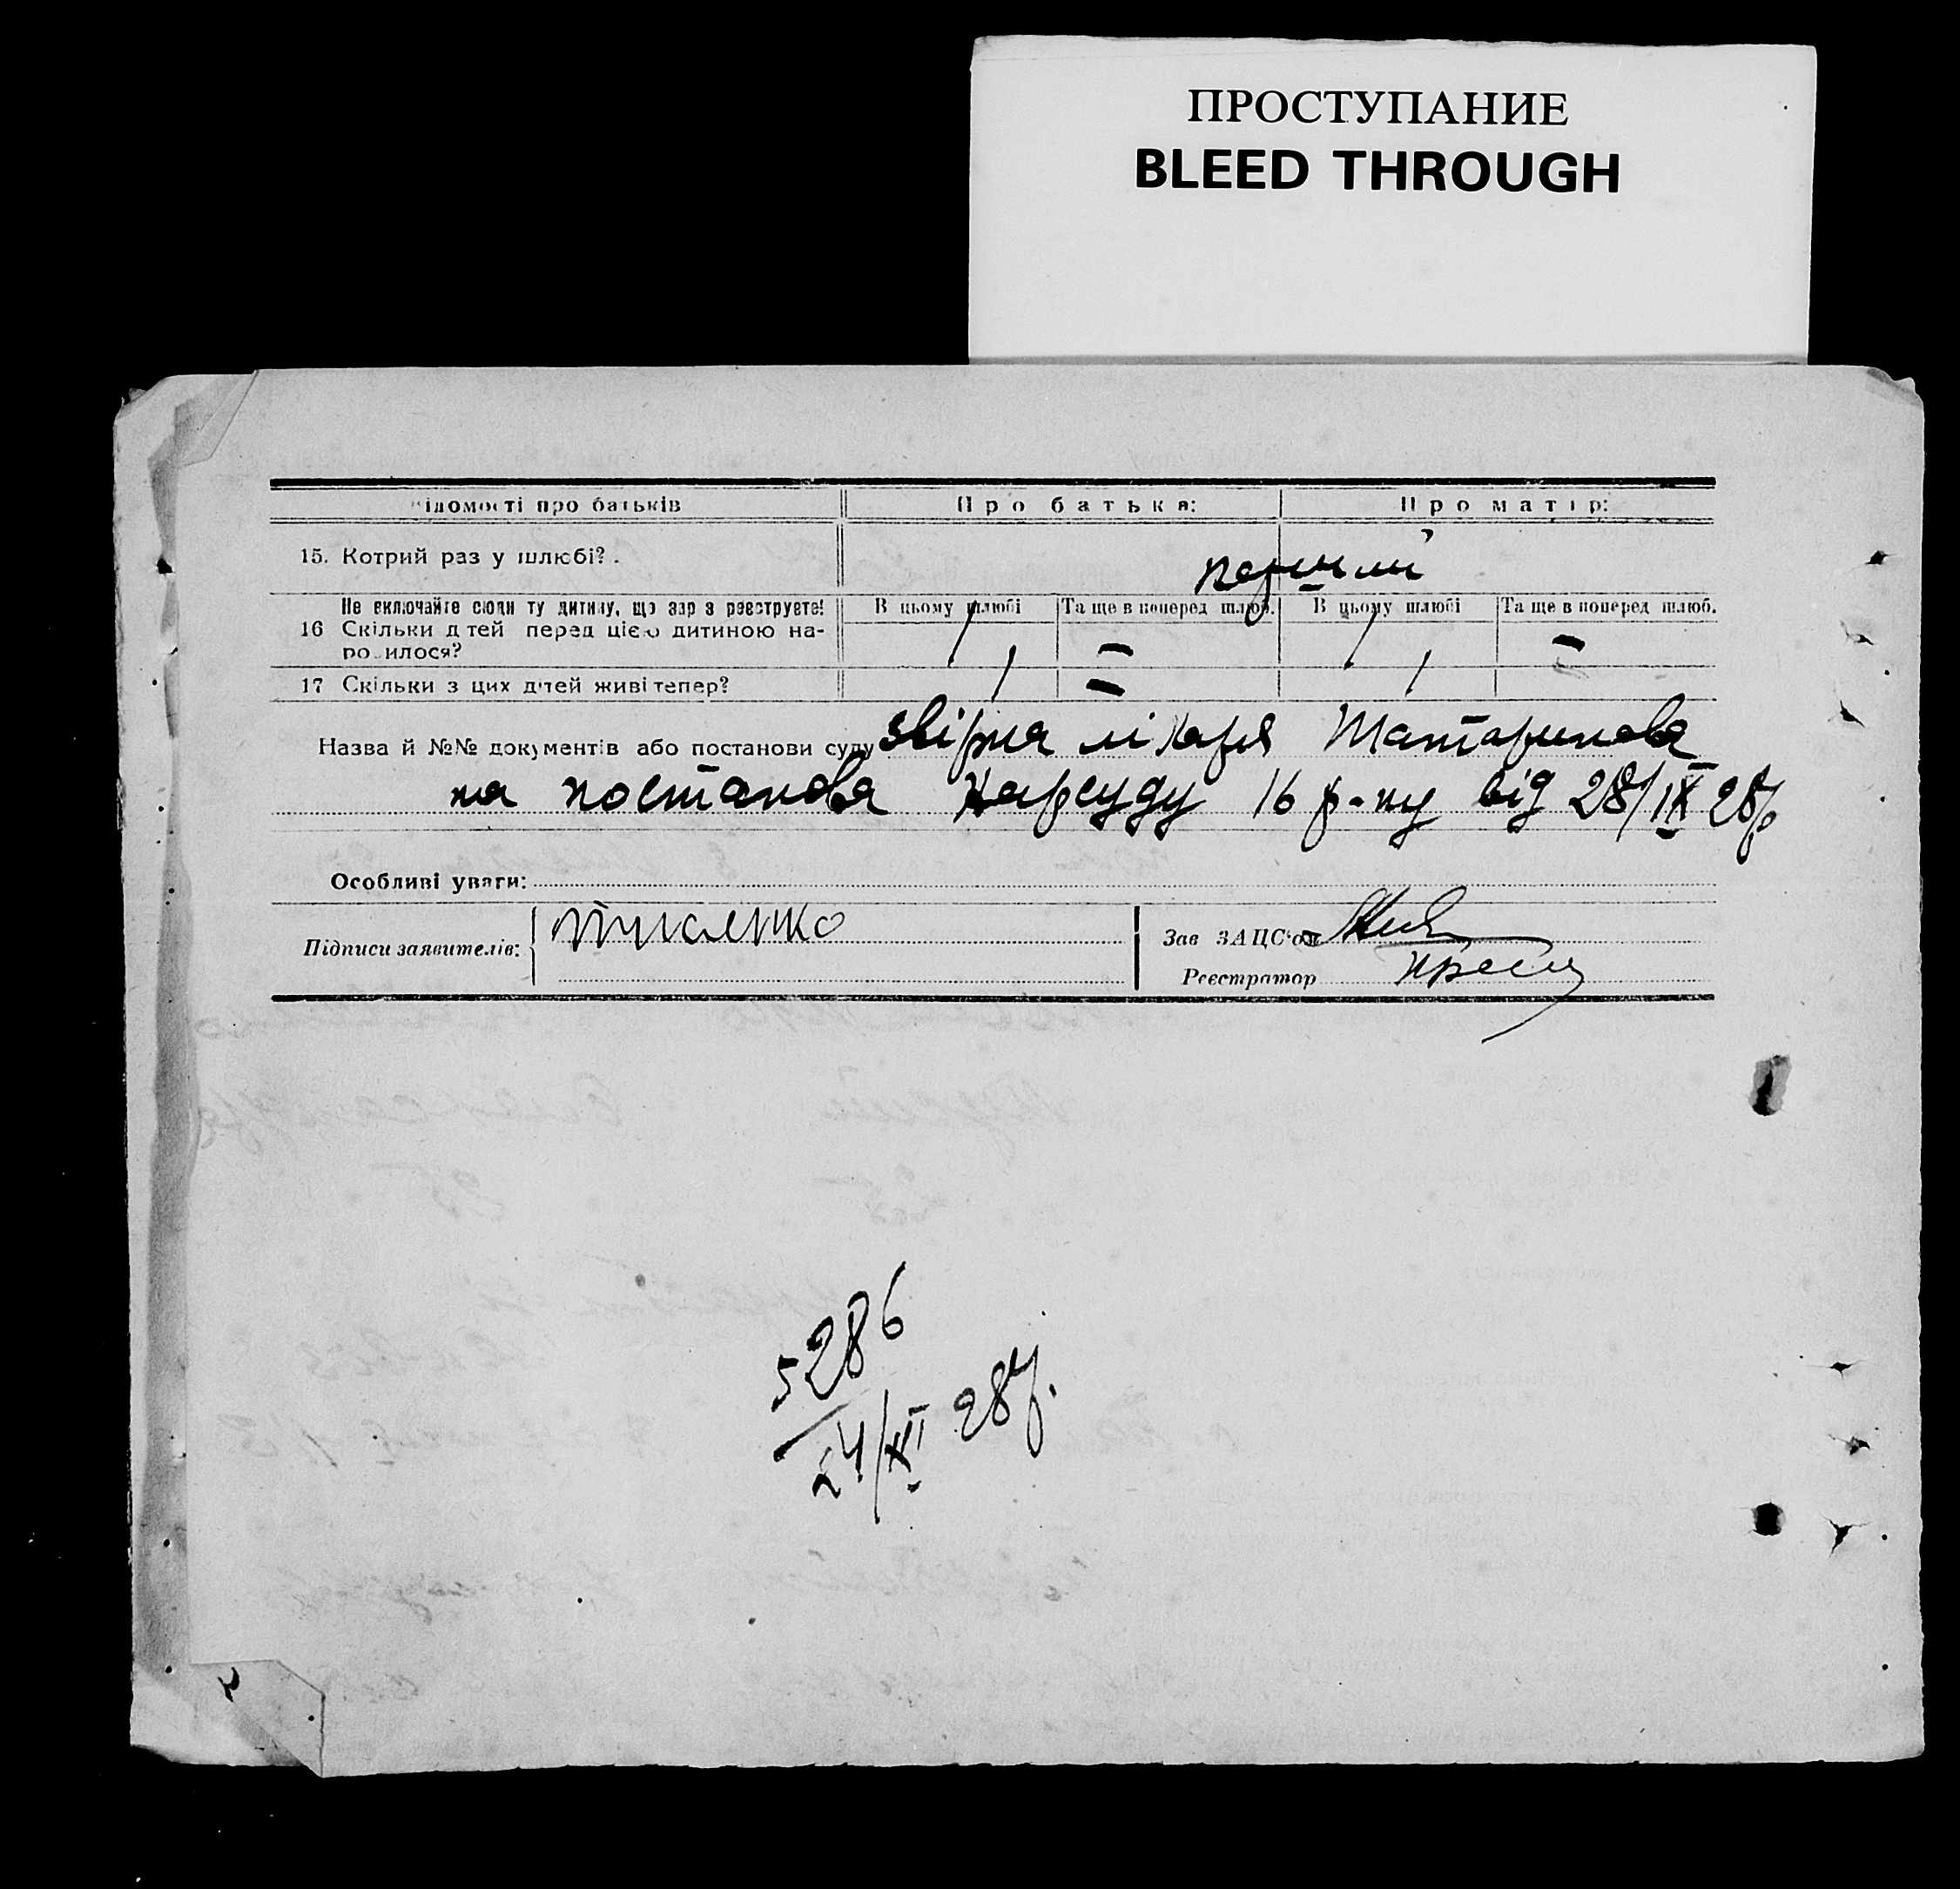 ПРОСТУПАНИЕ
BLEED THROUGH
ідомості про батьків Про батька: Про матір:
15. Котрий раз у шлюбі? . перший
Не включайте сюди ту дитину, що зараз реєструєте! В цьому шлюбі Та ще в поперед шлюб. В цьому шлюбі Та ще в поперед шлюб.
16 Скільки дітей перед цією дитиною на- 1 — 1 —
родилося?
17 Скільки з цих дітей живі тепер? 1 — 1
Назва й №№ документів або постанови суду лікаря Татаринова
на постанова Нарсуду 16 р-ну від 28/IX 28р
Особливі уваги:
Підписи заявителів:
Зав ЗАЦС'ом
Реєстратор
5286
24/XI 28р.